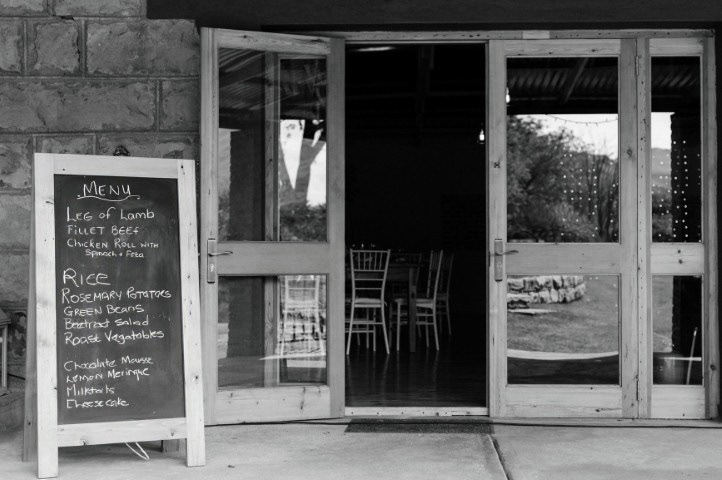 MENU
Leg of Lamb
Fillet Beef
Chicken Roll with
Spinach + Feta
Rice
Rosemary Potatoes
Green Beans
Beetroot Salad
Roast Vegatables
Chocolate Mousse
Lemon Meringue
Milktarts
Cheesecake